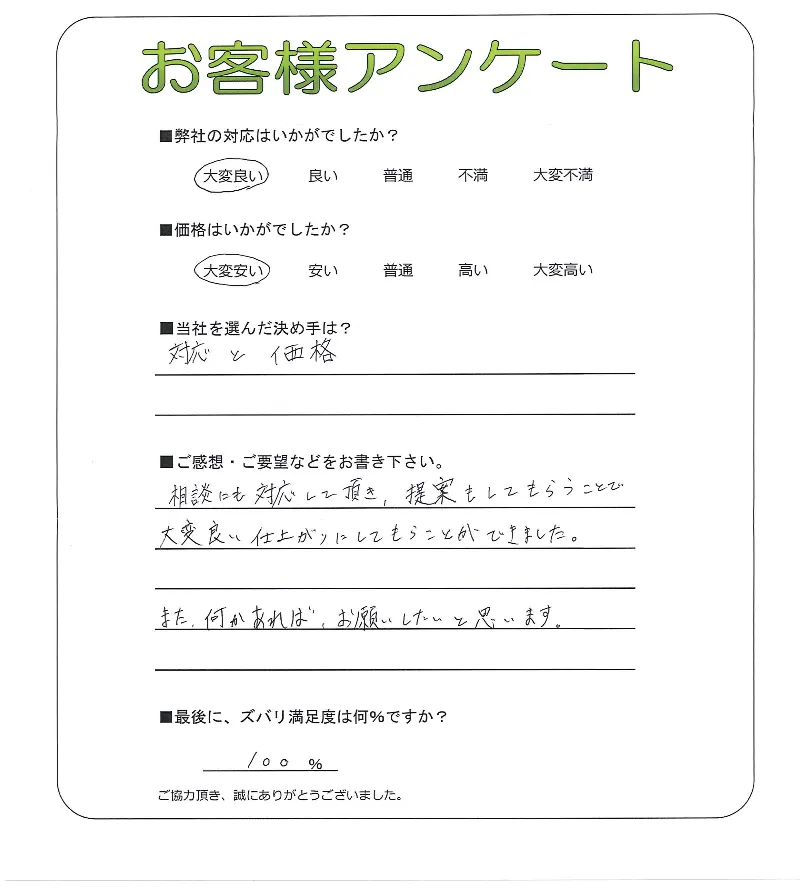 お客様アンケート
■弊社の対応はいかがでしたか？
大変良い 良い 普通 不満 大変不満
■価格はいかがでしたか？
大変安い 安い 普通 高い 大変高い
■当社を選んだ決め手は？
対応と価格
■ご感想・ご要望などをお書き下さい。
相談にも対応して頂き、提案もしてもらうことで
大変良い仕上がりにしてもらうことができました。
また、何かあれば、お願いしたいと思います。
■最後に、ズバリ満足度は何%ですか？
100 %
ご協力頂き、誠にありがとうございました。